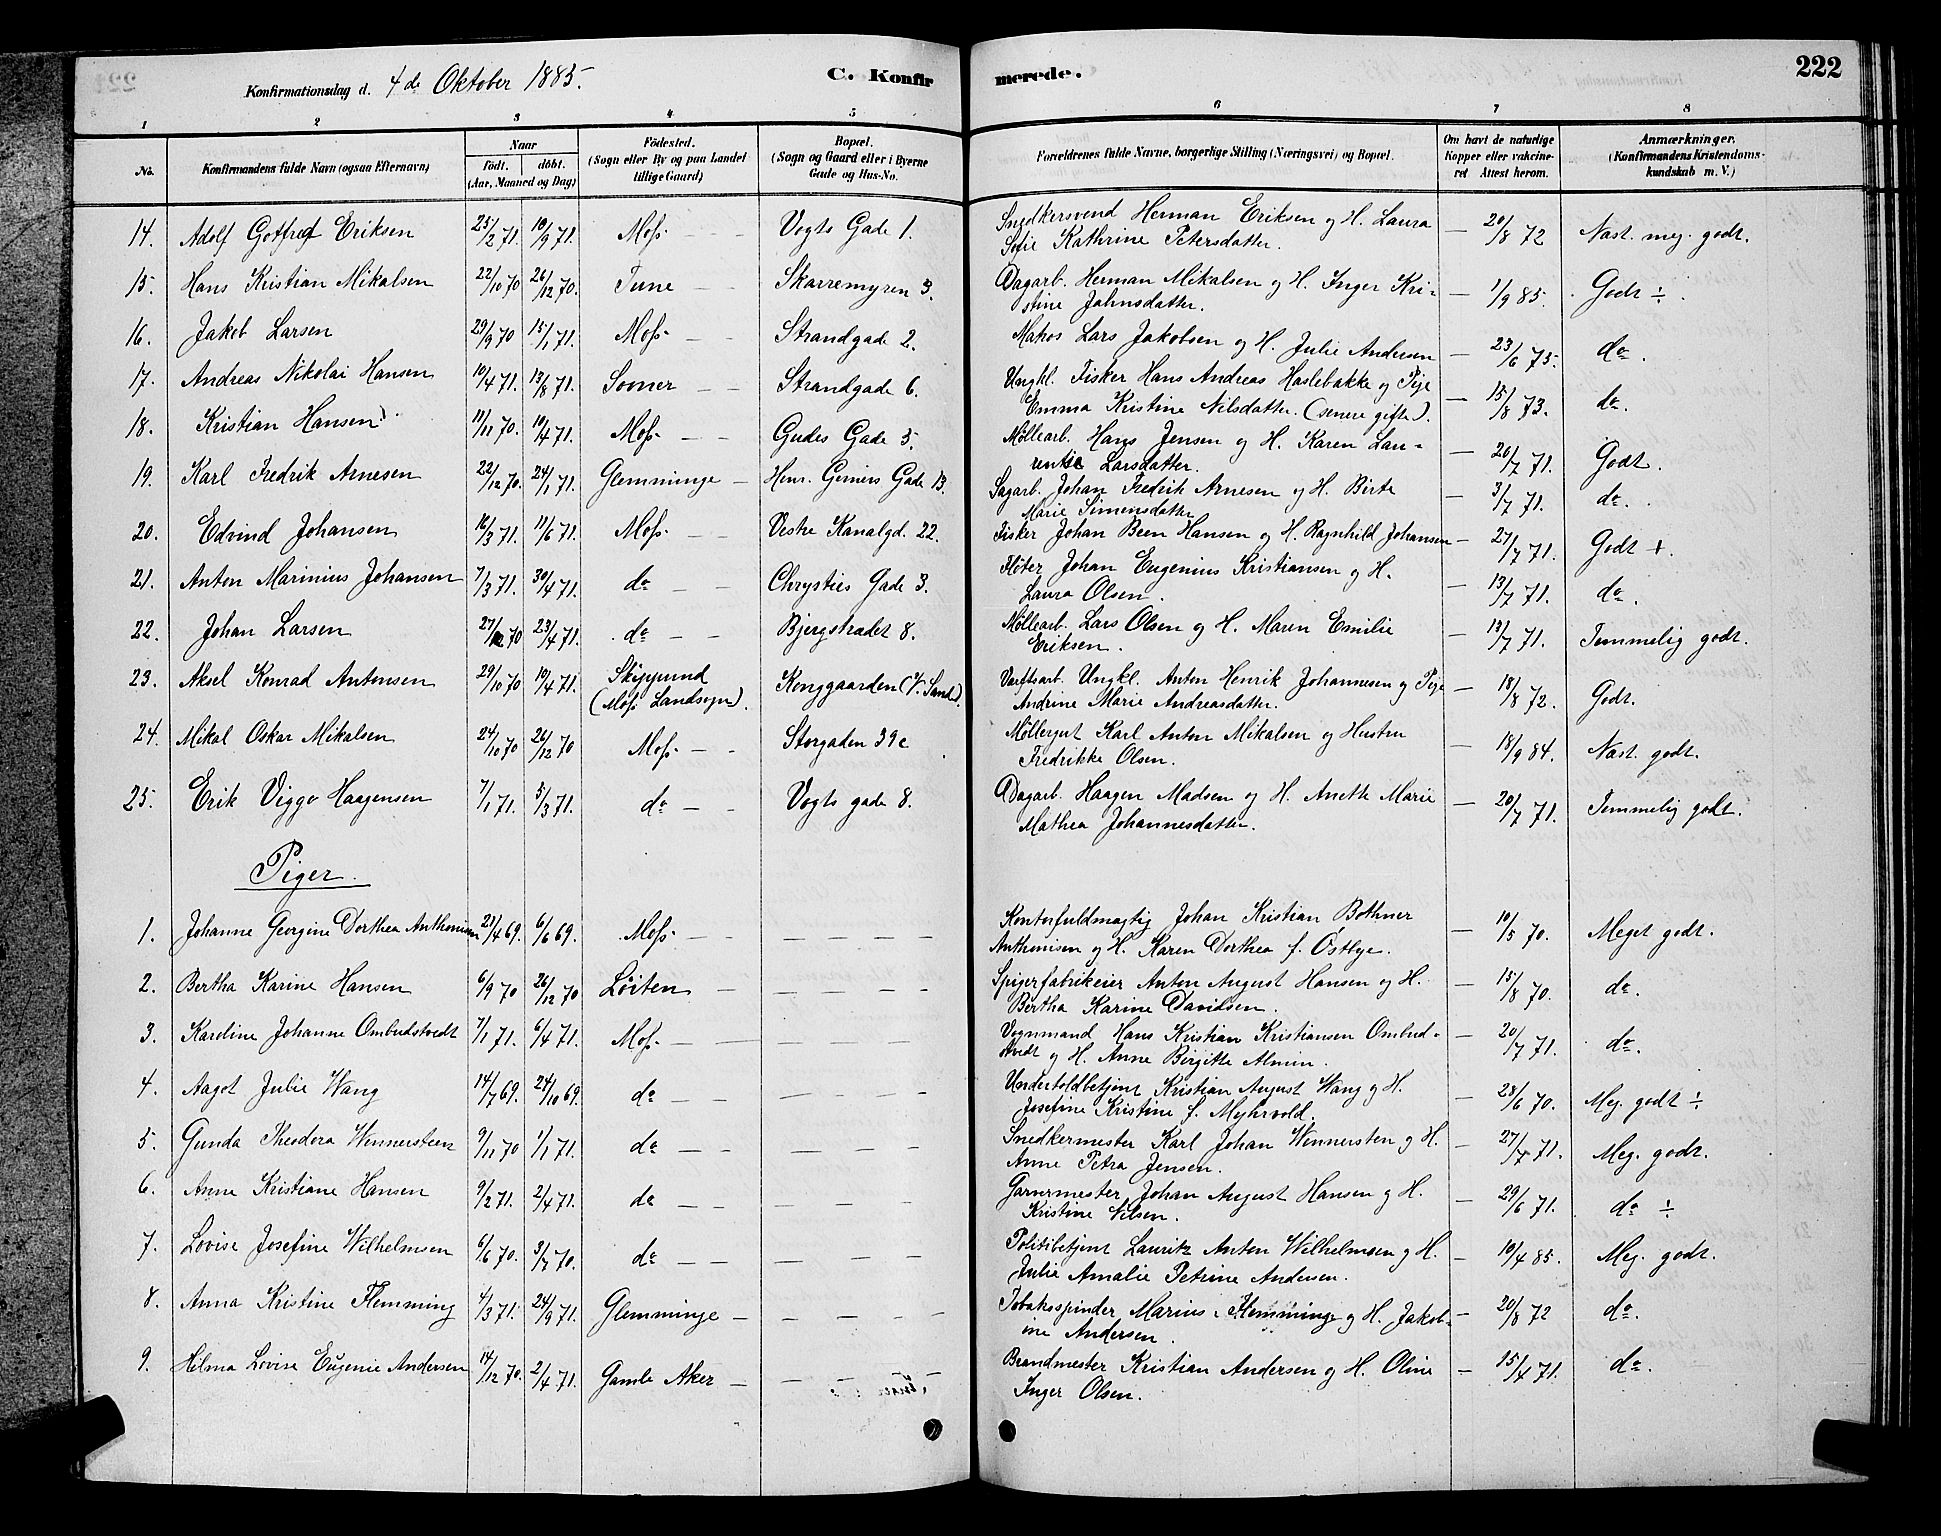 Konfirmationsdag d. 4de Oktober 1885.
C. Konfirmerede.
222
1 2 3 4 5 6 7 8
No.
Konfirmandens fulde Navn (ogsaa Efternavn)
Naar
födt. döbt.
(Aar, Maaned og Dag)
Födested.
(Sogn eller By og paa Landet
tillige Gaard)
Bopæl.
(Sogn og Gaard eller i Byerne
Gade og Hus-No.
Forældrenes fulde Navne, borgerlige Stilling (Næringsvei) og Bopæl.
Om havt de naturlige
Kopper eller vakcine-
ret Attest herom.
Anmærkninger.
(Konfirmandens Kristendoms-
kundskab m. V.)
14. Adolf Gotfred Eriksen 25/2 71. 10/9 71. Moss — — Vogts Gade 1. Snedkersvend Herman Eriksen og H. Laura — 20/8 72 Nast. meg. godt.
Sofie Kathrine Petersdatter.
15. Hans Kristian Mikalsen 22/10 70 26/12 70. Tune — — Skarremyren 3. Dagarb. Herman Mikalsen og H. Inger Kri- — 1/9 85. Godt ÷.
stine Jahnsdatter.
16. Jakob Larsen 29/9 70 15/1 71. Moss — — Strandgade 2. Matros Lars Jakobsen og H. Julie Andersen — 23/6 75. do.
17. Andreas Nikolai Hansen 10/4 71. 13/8 71. Sooner — — Strandgade 6. Ungkl. Fisker Hans Andreas Haslebakke og Pige — 15/8 73. do.
Emma Kristine Nilsdatter. (senere gifte).
18. Kristian Hansen 11/11 70. 10/4 71. Moss — — Gudes Gade 5. Møllearb. Hans Jensen og H. Karen Lau- — 20/7 71. Godt.
rentse Larsdatter.
19. Karl Fredrik Arnesen 22/12 70. 24/1 71. Glemminge — Henr. Gerners Gade 13. Sagarb. Johan Fredrik Arnesen og H. Birte — 3/7 71. do.
Marie Simensdatter
20. Edvind Johansen 16/3 71. 11/6 71. Moss — — Vestre Kanalgd. 22. Fisker Johan Been Hansen og H. Ragnhild Johansen — 27/7 71. Godt +.
21. Anton Marinius Johansen 7/3 71. 30/4 71. do — — Chrysties Gade 3. Fløter Johan Eugenius Kristiansen og H. — 13/7 71. do.
Laura Olsen.
22. Johan Larsen 27/12 70 23/4 71. do — — Bjergstrædet 8. Møllearb. Lars Olsen og H. Maren Emilie — 13/7 71. Temmelig godt.
Eriksen.
23. Aksel Konrad Antonsen 29/10 70 10/4 71. Skippund Konggaarden (V. Sand). Værftsarb. Ungkl. Anton Henrik Johannesen og Pige — 18/8 72. Godt.
(Moss Landsogn). Andrine Marie Andreasdatter.
24. Mikal Oskar Mikalsen 24/10 70 26/12 70 Moss — — Storgaden 39c Møllergut Karl Anton Mikalsen og Hustru — 18/9 84. Nast. godt.
Fredrikke Olsen.
25. Erik Viggo Haagensen 7/1 71. 5/3 71. do — — Vogts gade 8. Dagarb. Haagen Madsen og H. Anette Marie — 20/7 71. Temmelig godt.
Mathea Johannesdatter.
Piger.
1. Johanne Georgine Dorthea Anthonisen 21/4 69. 6/6 69. Moss — — — — — Kontorfuldmægtig Johan Kristian Bothner — 10/5 70. Meget godt.
Anthonisen og H. Karen Dorthea f. Østbye.
2. Bertha Karine Hansen 6/9 70 26/12 70 Løiten — — — — — Spigerfabrikeier Anton August Hansen og H. — 15/8 70. do.
Bertha Karine Davidsen.
3. Karoline Johanne Ombudstvedt 7/1 71. 6/4 71. Moss — — — — — Vognmand Hans Kristian Kristiansen Ombud- — 20/7 71. do.
stvedt og H. Anne Birgitte Almin.
4. Aagot Julie Wang 14/7 69. 24/10 69. do — — — — — — Undertoldbetjent Kristian August Wang og H. — 28/6 70. Meg. godt ÷
Josefine Kristine f. Myhrvold.
5. Gunda Theodora Wennersteen 9/11 70 1/1 71. do — — — — — — Snedkermester Karl Johan Wennersten og H. — 27/7 71. Meg. godt.
Anne Petra Jensen.
6. Anne Kristiane Hansen 9/2 71. 2/4 71. do — — — — — — Garvermester Johan August Hansen og H. — 29/6 71. do ÷
Kristine Nilsen.
7. Lovise Josefine Wilhelmsen 6/6 70. 3/7 70. do — — — — — Politibetjent Lauritz Anton Wilhelmsen og H. — 10/4 85. Meg. godt.
Julie Amalie Petrine Andersen.
8. Anna Kristine Flemming 4/3 71. 24/9 71. Glemminge — — — — — Tobaksspinder Marius Flemming og H. Jakob- — 20/8 72 do.
ine Andersen.
9. Hilma Lovise Eugenie Andersen 14/12 70. 2/4 71. Gamle Aker — — — — Brandmester Kristian Andersen og H. Oline — 15/4 71. do.
Inger Olsen.